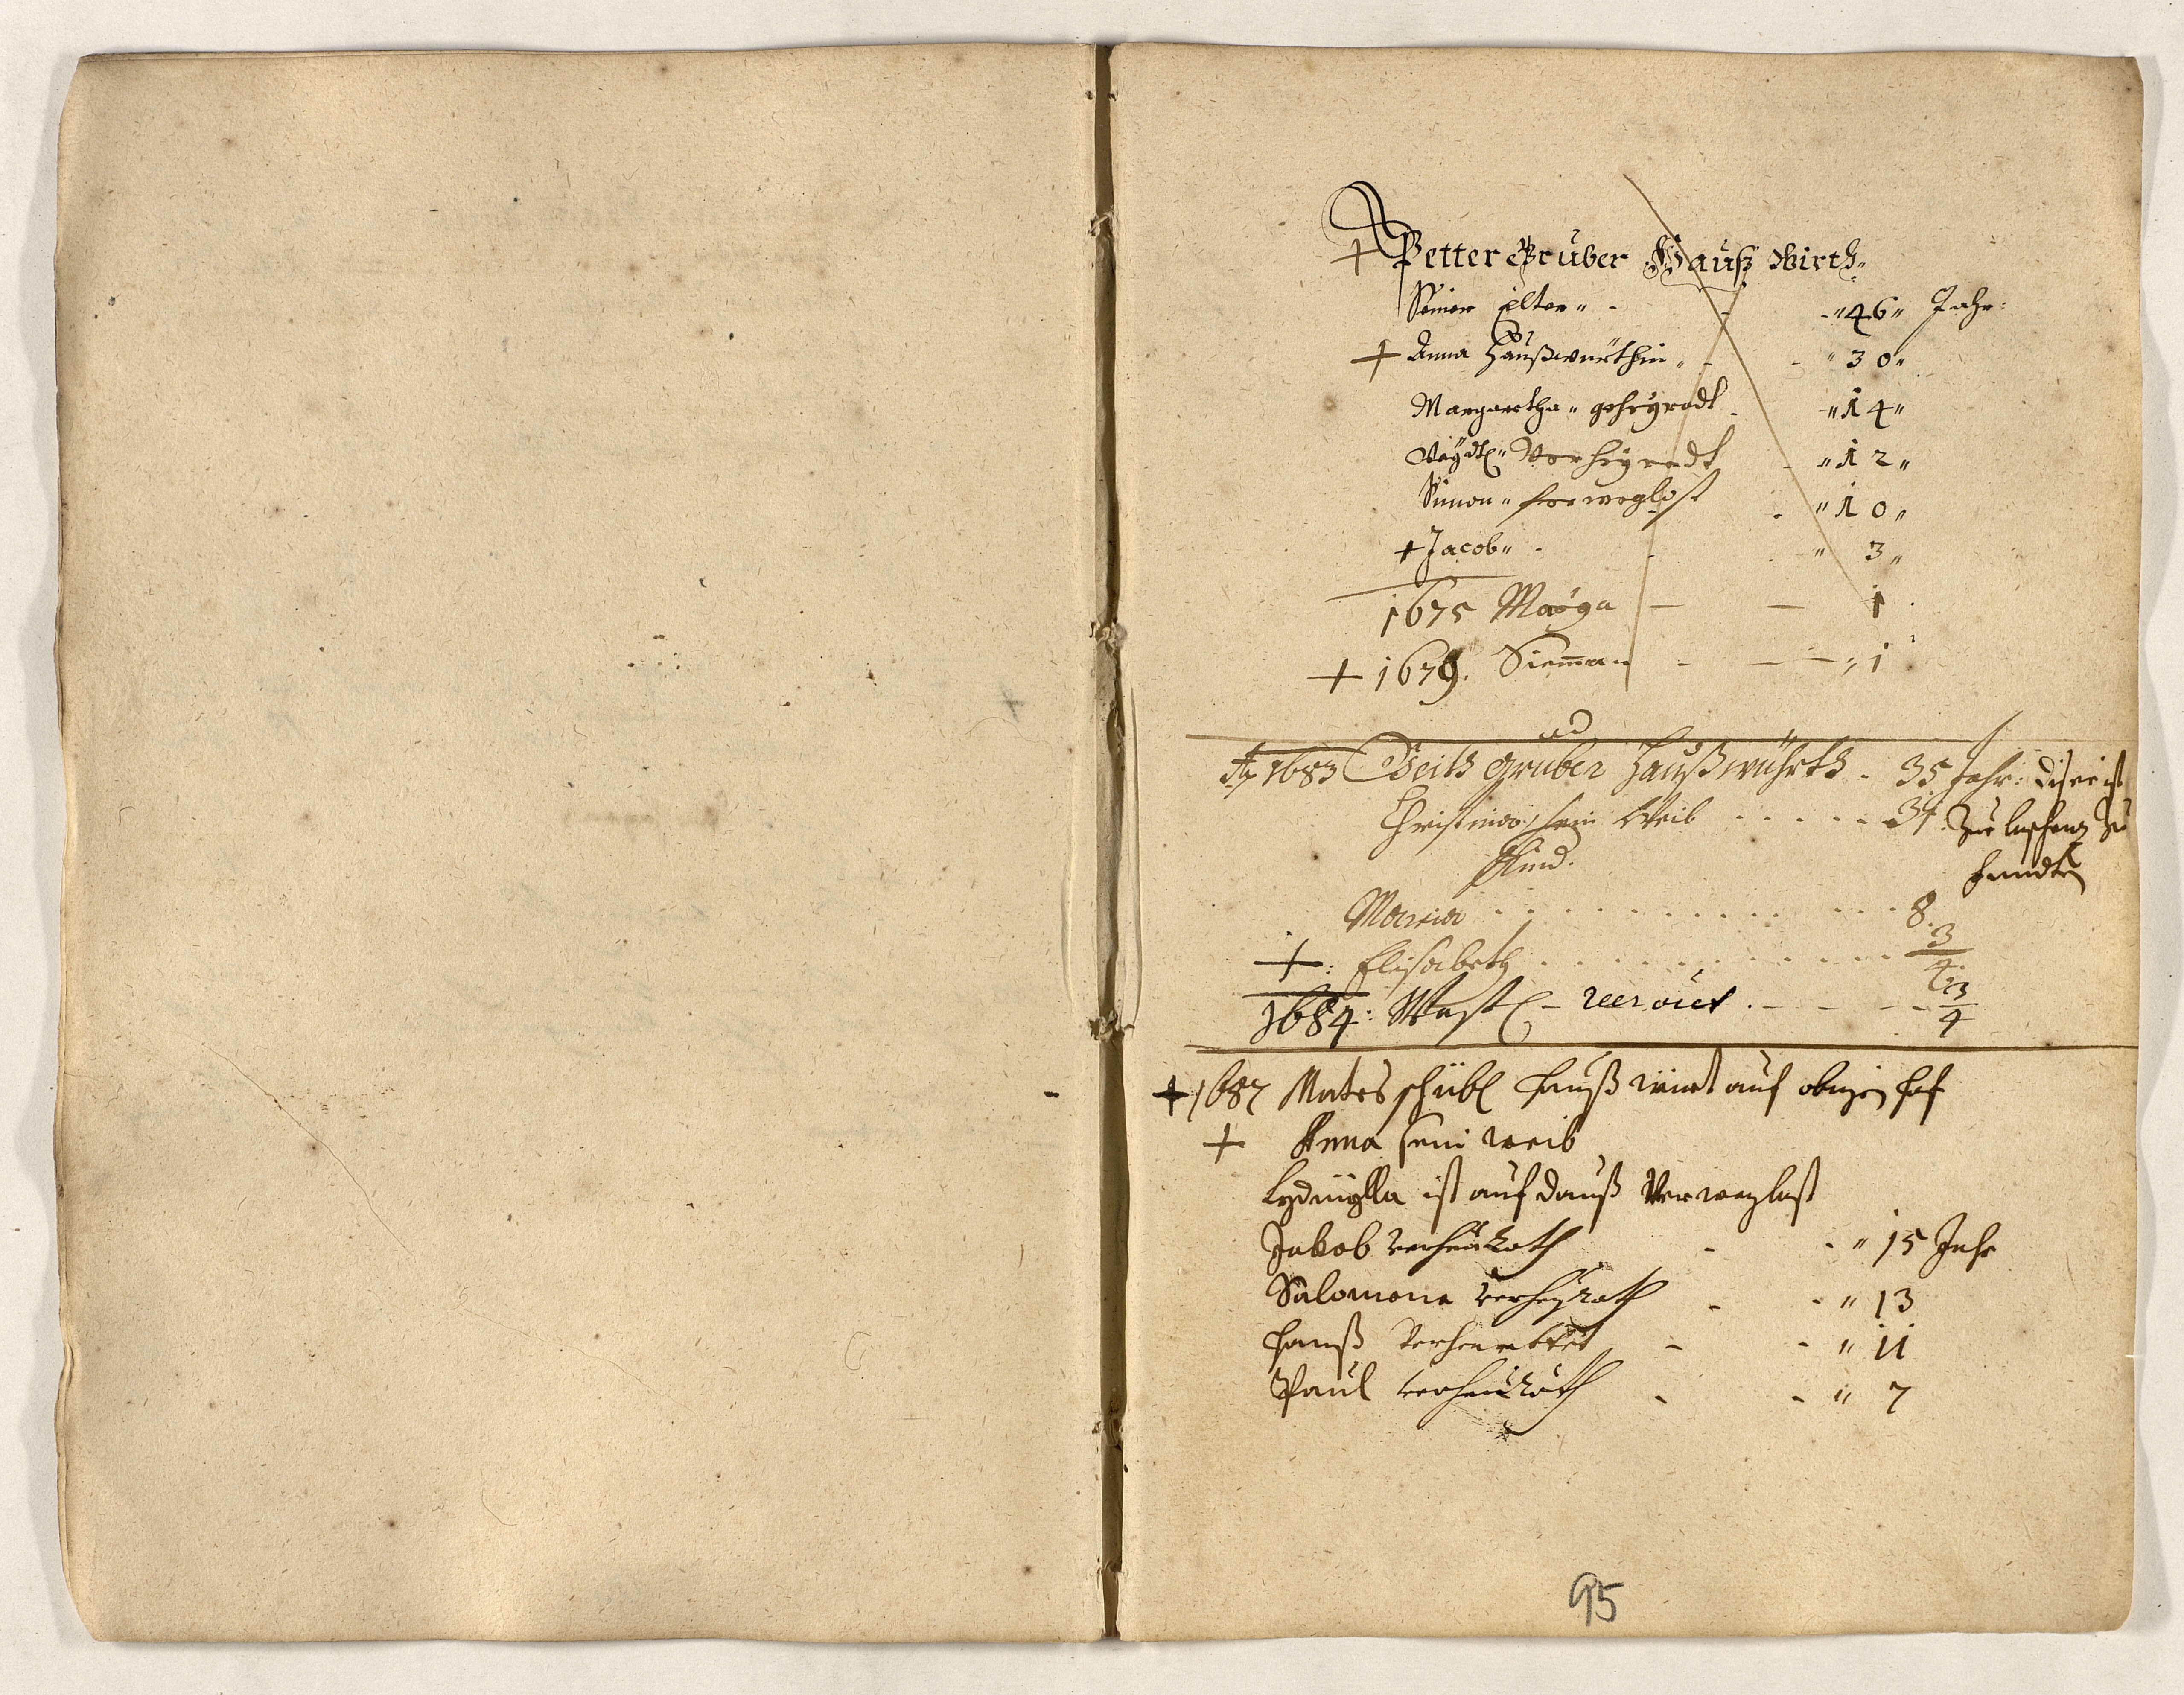 + Petter Gruber Hauß Wirth„
Seines Elter„ - - -„46„ Jahr:
+ Anna Haußwürthin„ - - „30„
Margaretha„ geheyradt - „14„
Veydtl„ Verheyradt - „12„
Simon„ freweglost - „10„
+ Jacob„ - - - „ 3„
1675 Maria — — 1
+ 1679. Sieman - — 1
Ao 1683 Veith Gruber Haußwührth - 35 Jahr: diser ist
Christina, sein Weib . . . . . 34. zu
Kind.
Maria . . . . . . . . 8.
+: Elisabeth . . . . . . . . 3/4
1684: . - - - 3/4
+ 1687 Mates haußwirt auf obigen hof
+ Anna sein weib
Lydmylla ist auf dauß Verweglast
Jakob verheurath - - „ 15 Jahr
Salomona verheyrath - - „ 13
Hanß verheurattet - - „ 11
Paul verheurath - - „ 7
95